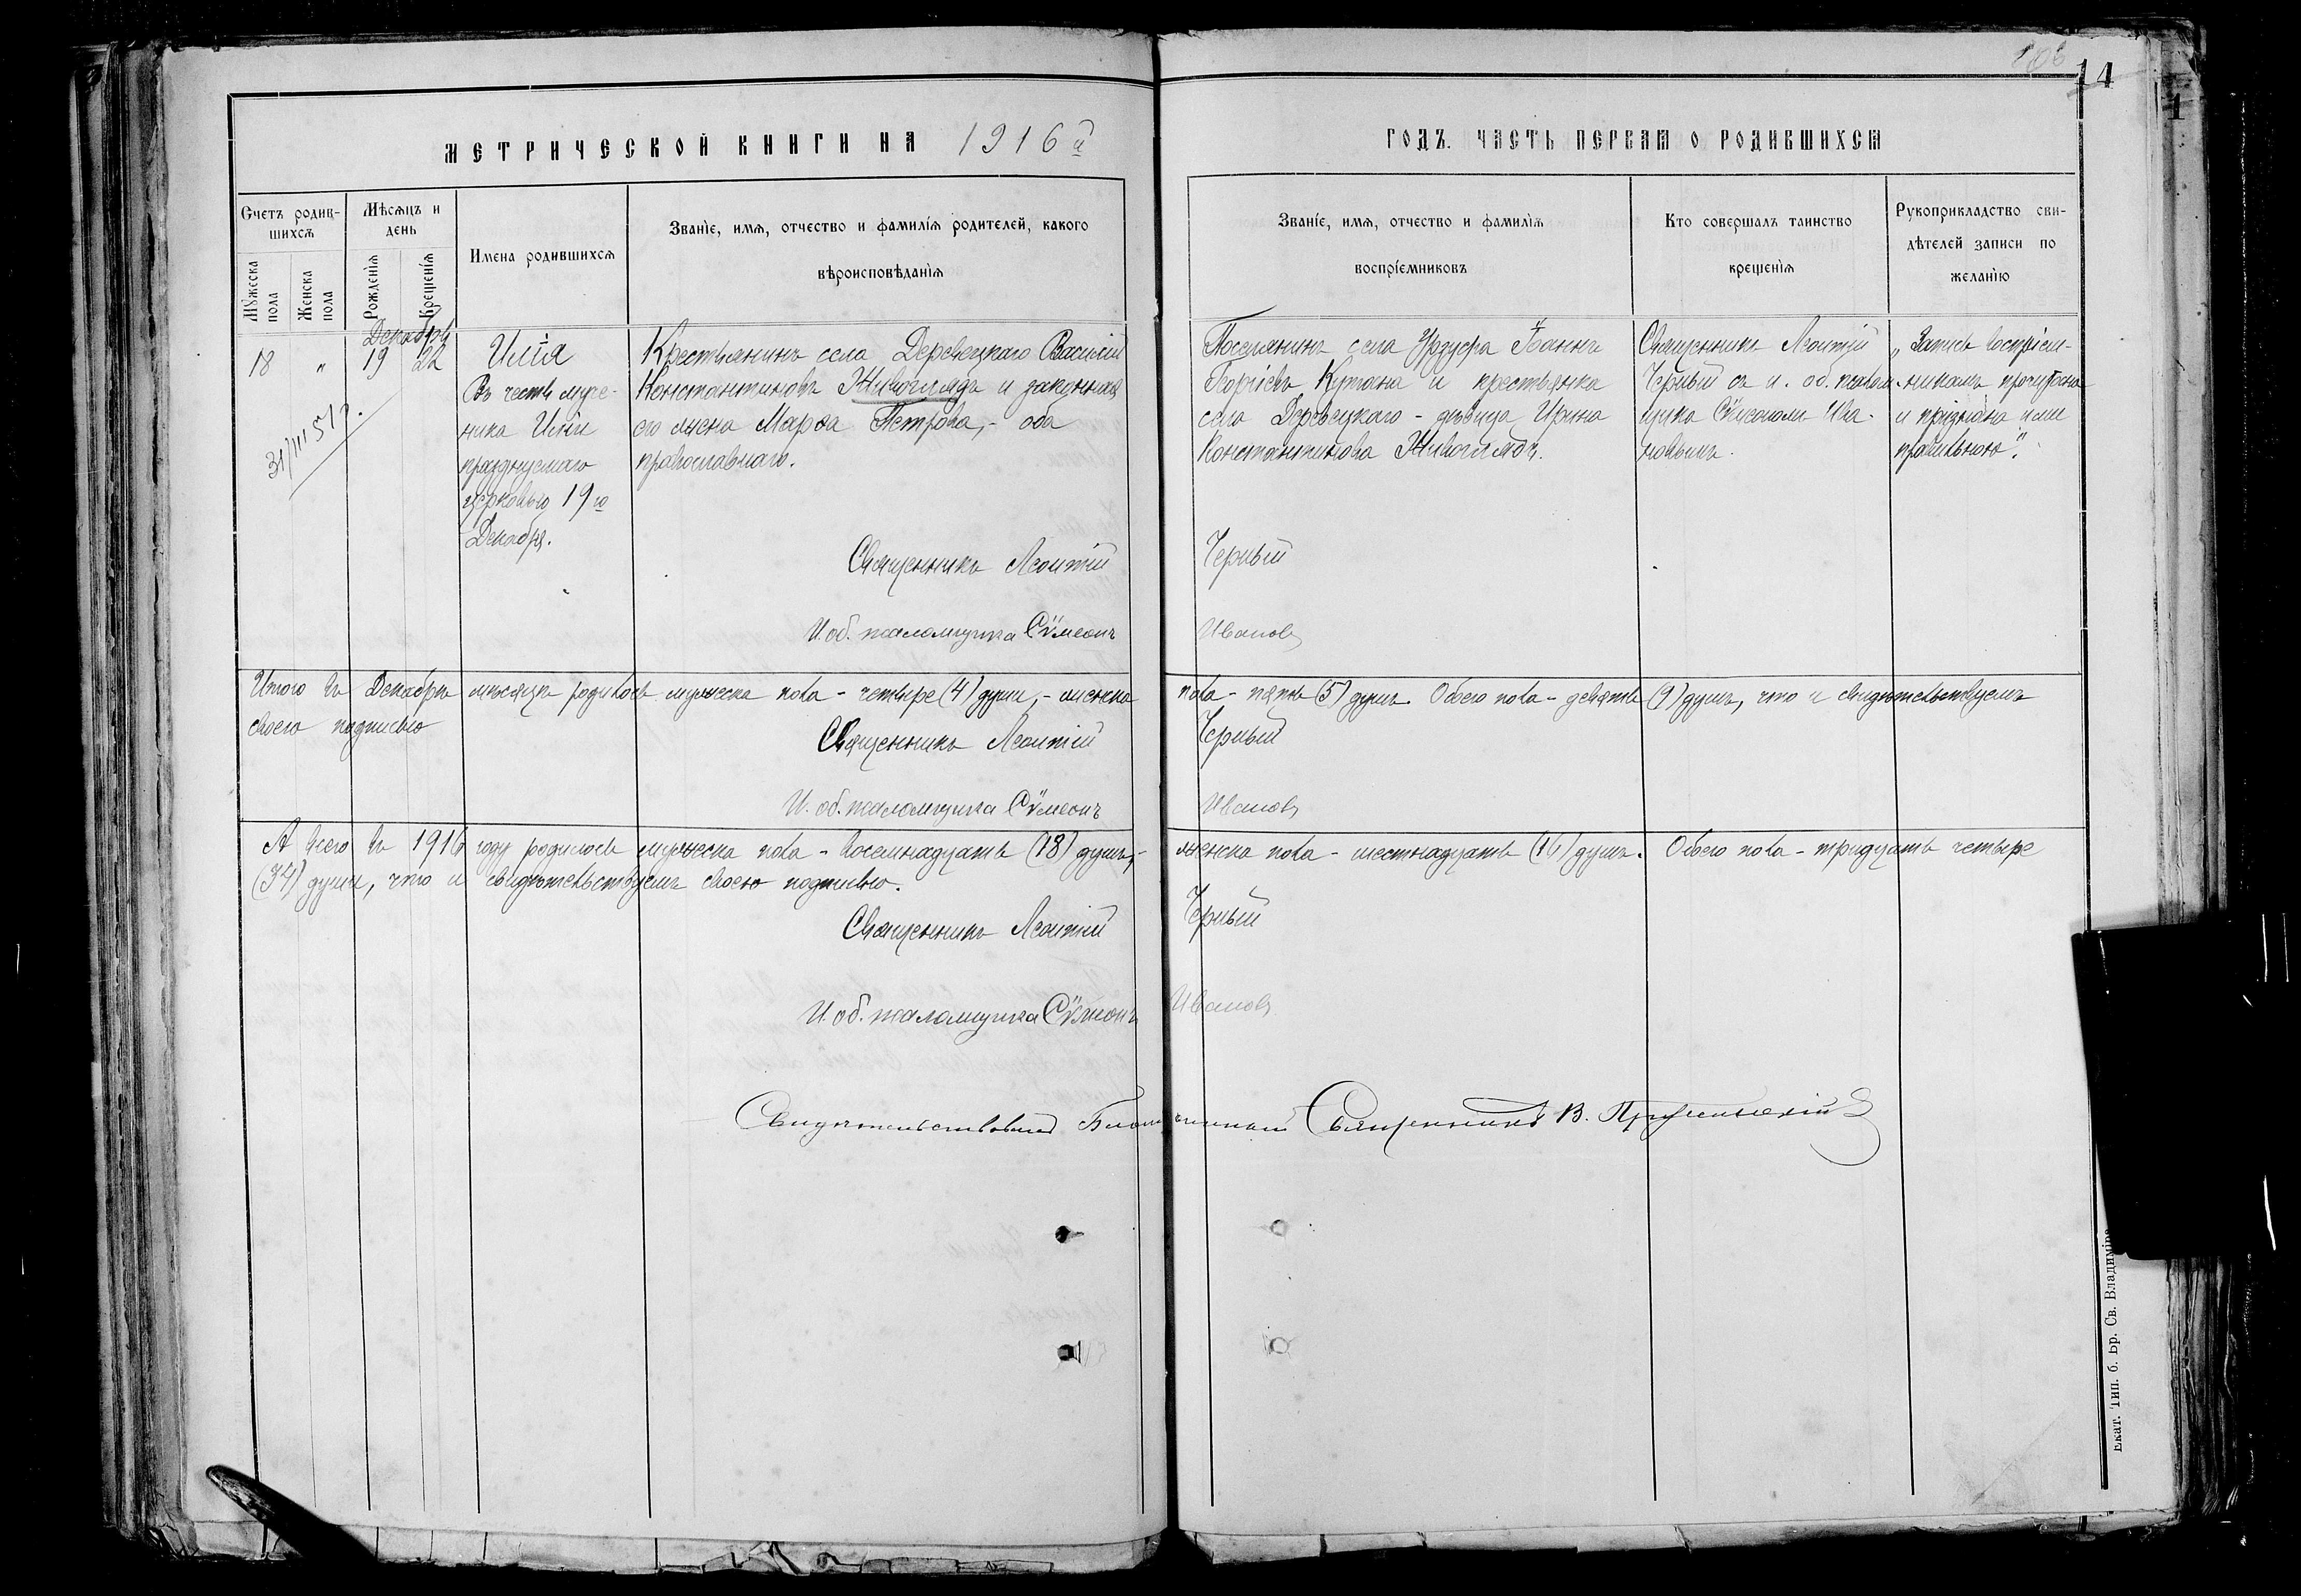 106
14
1
МЕТРИЧЕСКОЙ КНИГИ НА 1916й
ГОДЪ. ЧАСТЬ ПЕРВАЯ О РОДИВШИХСЯ
Счетъ родив-
шихся
Мужеска
пола
Женска
пола
Мѣсяцъ и
день
Рожденія
Крещенія
Имена родившихся
Званіе, имя, отчество и фамилія родителей, какого
вѣроисповѣданія
Званіе, имя, отчество и фамилія
воспріемниковъ
Кто совершалъ таинство
крещенія
Рукоприкладство сви-
дѣтелей записи по
желанію
Декабрь
18 " 19 22
31/III 51 г.
Илія
Въ честь муче-
ника Иліи
празднуемаго
церковью 19го
Декабря.
Крестьянинъ села Деревецкаго Василій
Константиновъ Живоглядъ и законная
его жена Марѳа Петрова, - оба
православнаго.
Поселянинъ села Урзуфа Іоаннъ
Георгіевъ Кутана и крестьянка
села Деревецкаго - дѣвица Ирина
Константинова Живоглядъ.
Священникъ Леонтій
Черный съ и. об. псалом-
щика Сѵмеономъ Ива-
новымъ.
„Запись воспріем-
никамъ прочитана
и признана ими
правильною".
Священникъ Леонтій Черный
И. об. псаломщика Сѵмеонъ Ивановъ
Итого въ Декабрѣ мѣсяцѣ родилось мужеска пола - четыре (4) души, - женска пола - пять (5) душъ. Обоего пола - девять (9) душъ, что и свидѣтельствуемъ
своею подписью
Священникъ Леонтій Черный
И. об. псаломщика Сѵмеонъ Ивановъ
А всего въ 1916 году родилось мужеска пола - восемнадцать (18) душъ, - женска пола - шестнадцать (16) душъ. Обоего пола - тридцать четыре
(34) души, что и свидѣтельствуемъ своею подписью.
Священникъ Леонтій Черный
И. об. псаломщика Сѵмеонъ Ивановъ
Свидѣтельствовалъ Благочинный Священникъ В.
Екат. Тип. б. Бр. Св. Владиміра